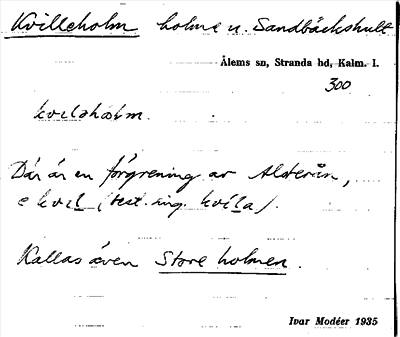 Kvilleholm holme u. Sandbäckshult
Ålems sn, Stranda hd, Kalm. l.
300
kvɩləhàlm.
Där är en förgrening av Alsterån,
e kvɩl (best. sing. kvíla).
Kallas även Store holmen.
Ivar Modéer 1935